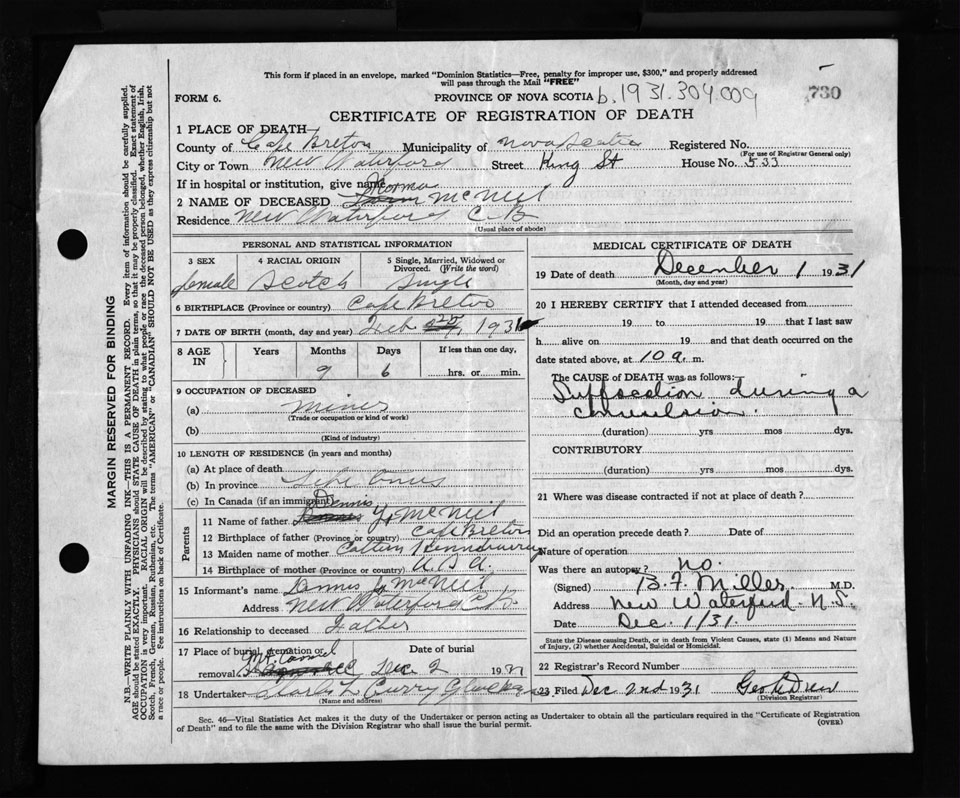 This form if placed in an envelope, marked "Dominion Statistics—Free, penalty for improper use, $300," and properly addressed
will pass through the Mail "FREE"
FORM 6. PROVINCE OF NOVA SCOTIA b.1931.304.009 730
CERTIFICATE OF REGISTRATION OF DEATH
1 PLACE OF DEATH
County of Cape Breton Municipality of Nova Scotia Registered No.
(For use of Registrar General only)
City or Town New Waterford Street King St House No. 533
If in hospital or institution, give name
Norma
2 NAME OF DECEASED McNeil
Residence New Waterford C-B
(Usual place of abode)
PERSONAL AND STATISTICAL INFORMATION
3 SEX 4 RACIAL ORIGIN 5 Single, Married, Widowed or Divorced. (Write the word)
female Scotch Single
6 BIRTHPLACE (Province or country) Cape Breton
7 DATE OF BIRTH (month, day and year) Feb 1931
8 AGE IN Years Months Days If less than one day,
9 6 hrs. or min.
9 OCCUPATION OF DECEASED
(a) miner
(Trade or occupation or kind of work)
(b)
(Kind of industry)
10 LENGTH OF RESIDENCE (in years and months)
(a) At place of death
(b) In province Life
(c) In Canada (if an immigrant)
Parents
Dennis
11 Name of father McNeil
12 Birthplace of father (Province or country) Cape Breton
13 Maiden name of mother
14 Birthplace of mother (Province or country)
15 Informant's name Dennis McNeil
Address New Waterford C.B.
16 Relationship to deceased Father
17 Place of burial, cremation or removal Date of burial
Mt. Carmel Dec 2 19
18 Undertaker Curry Glace Bay
(Name and address)
MEDICAL CERTIFICATE OF DEATH
19 Date of death December 1 1931
(Month, day and year)
20 I HEREBY CERTIFY that I attended deceased from
19 to 19 that I last saw
h alive on 19 and that death occurred on the
date stated above, at 10 a. m.
The CAUSE OF DEATH was as follows:
Suffocation during a
convulsion.
(duration) yrs mos dys.
CONTRIBUTORY
(duration) yrs mos dys.
21 Where was disease contracted if not at place of death?
Did an operation precede death? Date of
Nature of operation
Was there an autopsy? no.
(Signed) B. F. Miller M.D.
Address New Waterford. N.S.
Date Dec. 1/31.
State the Disease causing Death, or in death from Violent Causes, state (1) Means and Nature
of Injury, (2) whether Accidental, Suicidal or Homicidal.
22 Registrar's Record Number
23 Filed Dec 2nd 1931 Geo
(Division Registrar)
Sec. 46—Vital Statistics Act makes it the duty of the Undertaker or person acting as Undertaker to obtain all the particulars required in the "Certificate of Registration
of Death" and to file the same with the Division Registrar who shall issue the burial permit. (OVER)
MARGIN RESERVED FOR BINDING
N.B.—WRITE PLAINLY WITH UNFADING INK—THIS IS A PERMANENT RECORD. Every item of information should be carefully supplied.
AGE should be stated EXACTLY. PHYSICIANS should STATE CAUSE OF DEATH in plain terms, so that it may be properly classified. Exact statement of
OCCUPATION is very important. RACIAL ORIGIN will be described by stating to what people or race the deceased person belonged, whether English, Irish,
Scotch, French, German, Russian, Ruthenian, etc. The terms "AMERICAN" or "CANADIAN" SHOULD NOT BE USED as they express citizenship but not
a race or people. See instructions on back of Certificate.